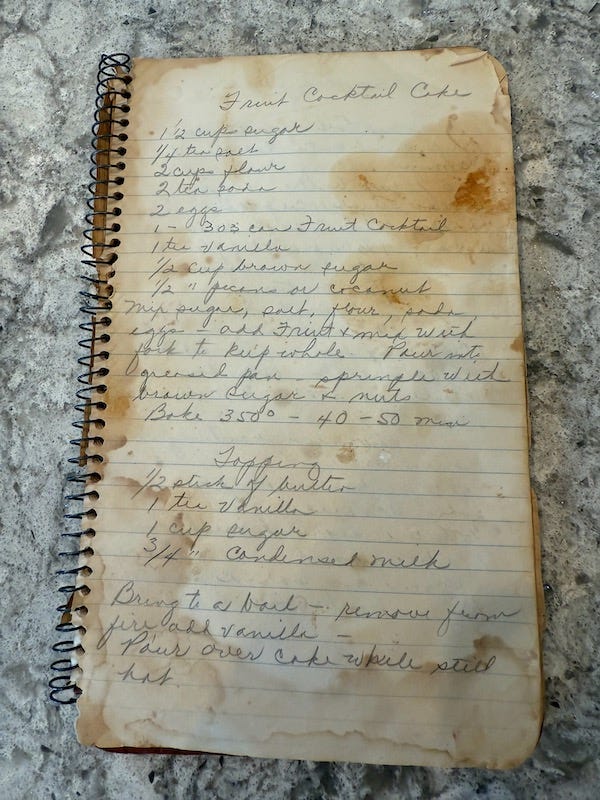 Fruit Cocktail Cake
1 1/2 cup sugar
1/4 tea salt
2 cups flour
2 tea soda
2 eggs
1 - 303 can Fruit Cocktail
1 tea Vanilla
1/2 cup brown sugar
1/2 " pecans or coconut
Mix sugar, salt, flour, soda,
eggs - add Fruit & mix with
fork to keep whole. Pour into
greased pan - sprinkle with
brown sugar & nuts
Bake 350° - 40 - 50 min
Topping
1/2 stick of butter
1 tea Vanilla
1 cup sugar
3/4 " Condensed milk
Bring to a boil - remove from
fire add vanilla -
Pour over cake while still
hot.